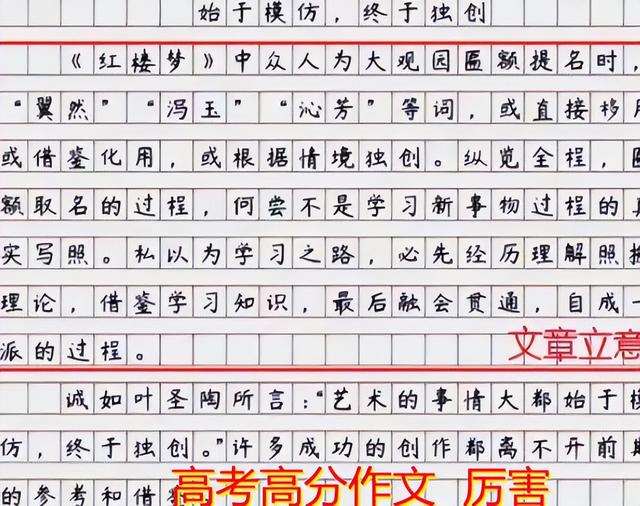 始于模仿，终于独创
《红楼梦》中众人为大观园匾额提名时，
“翼然”“冯玉”“沁芳”等词，或直接移用
或借鉴化用，或根据情境独创。纵览全程，匾
额取名的过程，何尝不是学习新事物过程的真
实写照。私以为学习之路，必先经历理解照搬
理论，借鉴学习知识，最后融会贯通，自成一
派的过程。
文章立意
诚如叶圣陶所言：“艺术的事情大都始于模
仿，终于独创。”许多成功的创作都离不开前期
的参考和借
高考高分作文 厉害